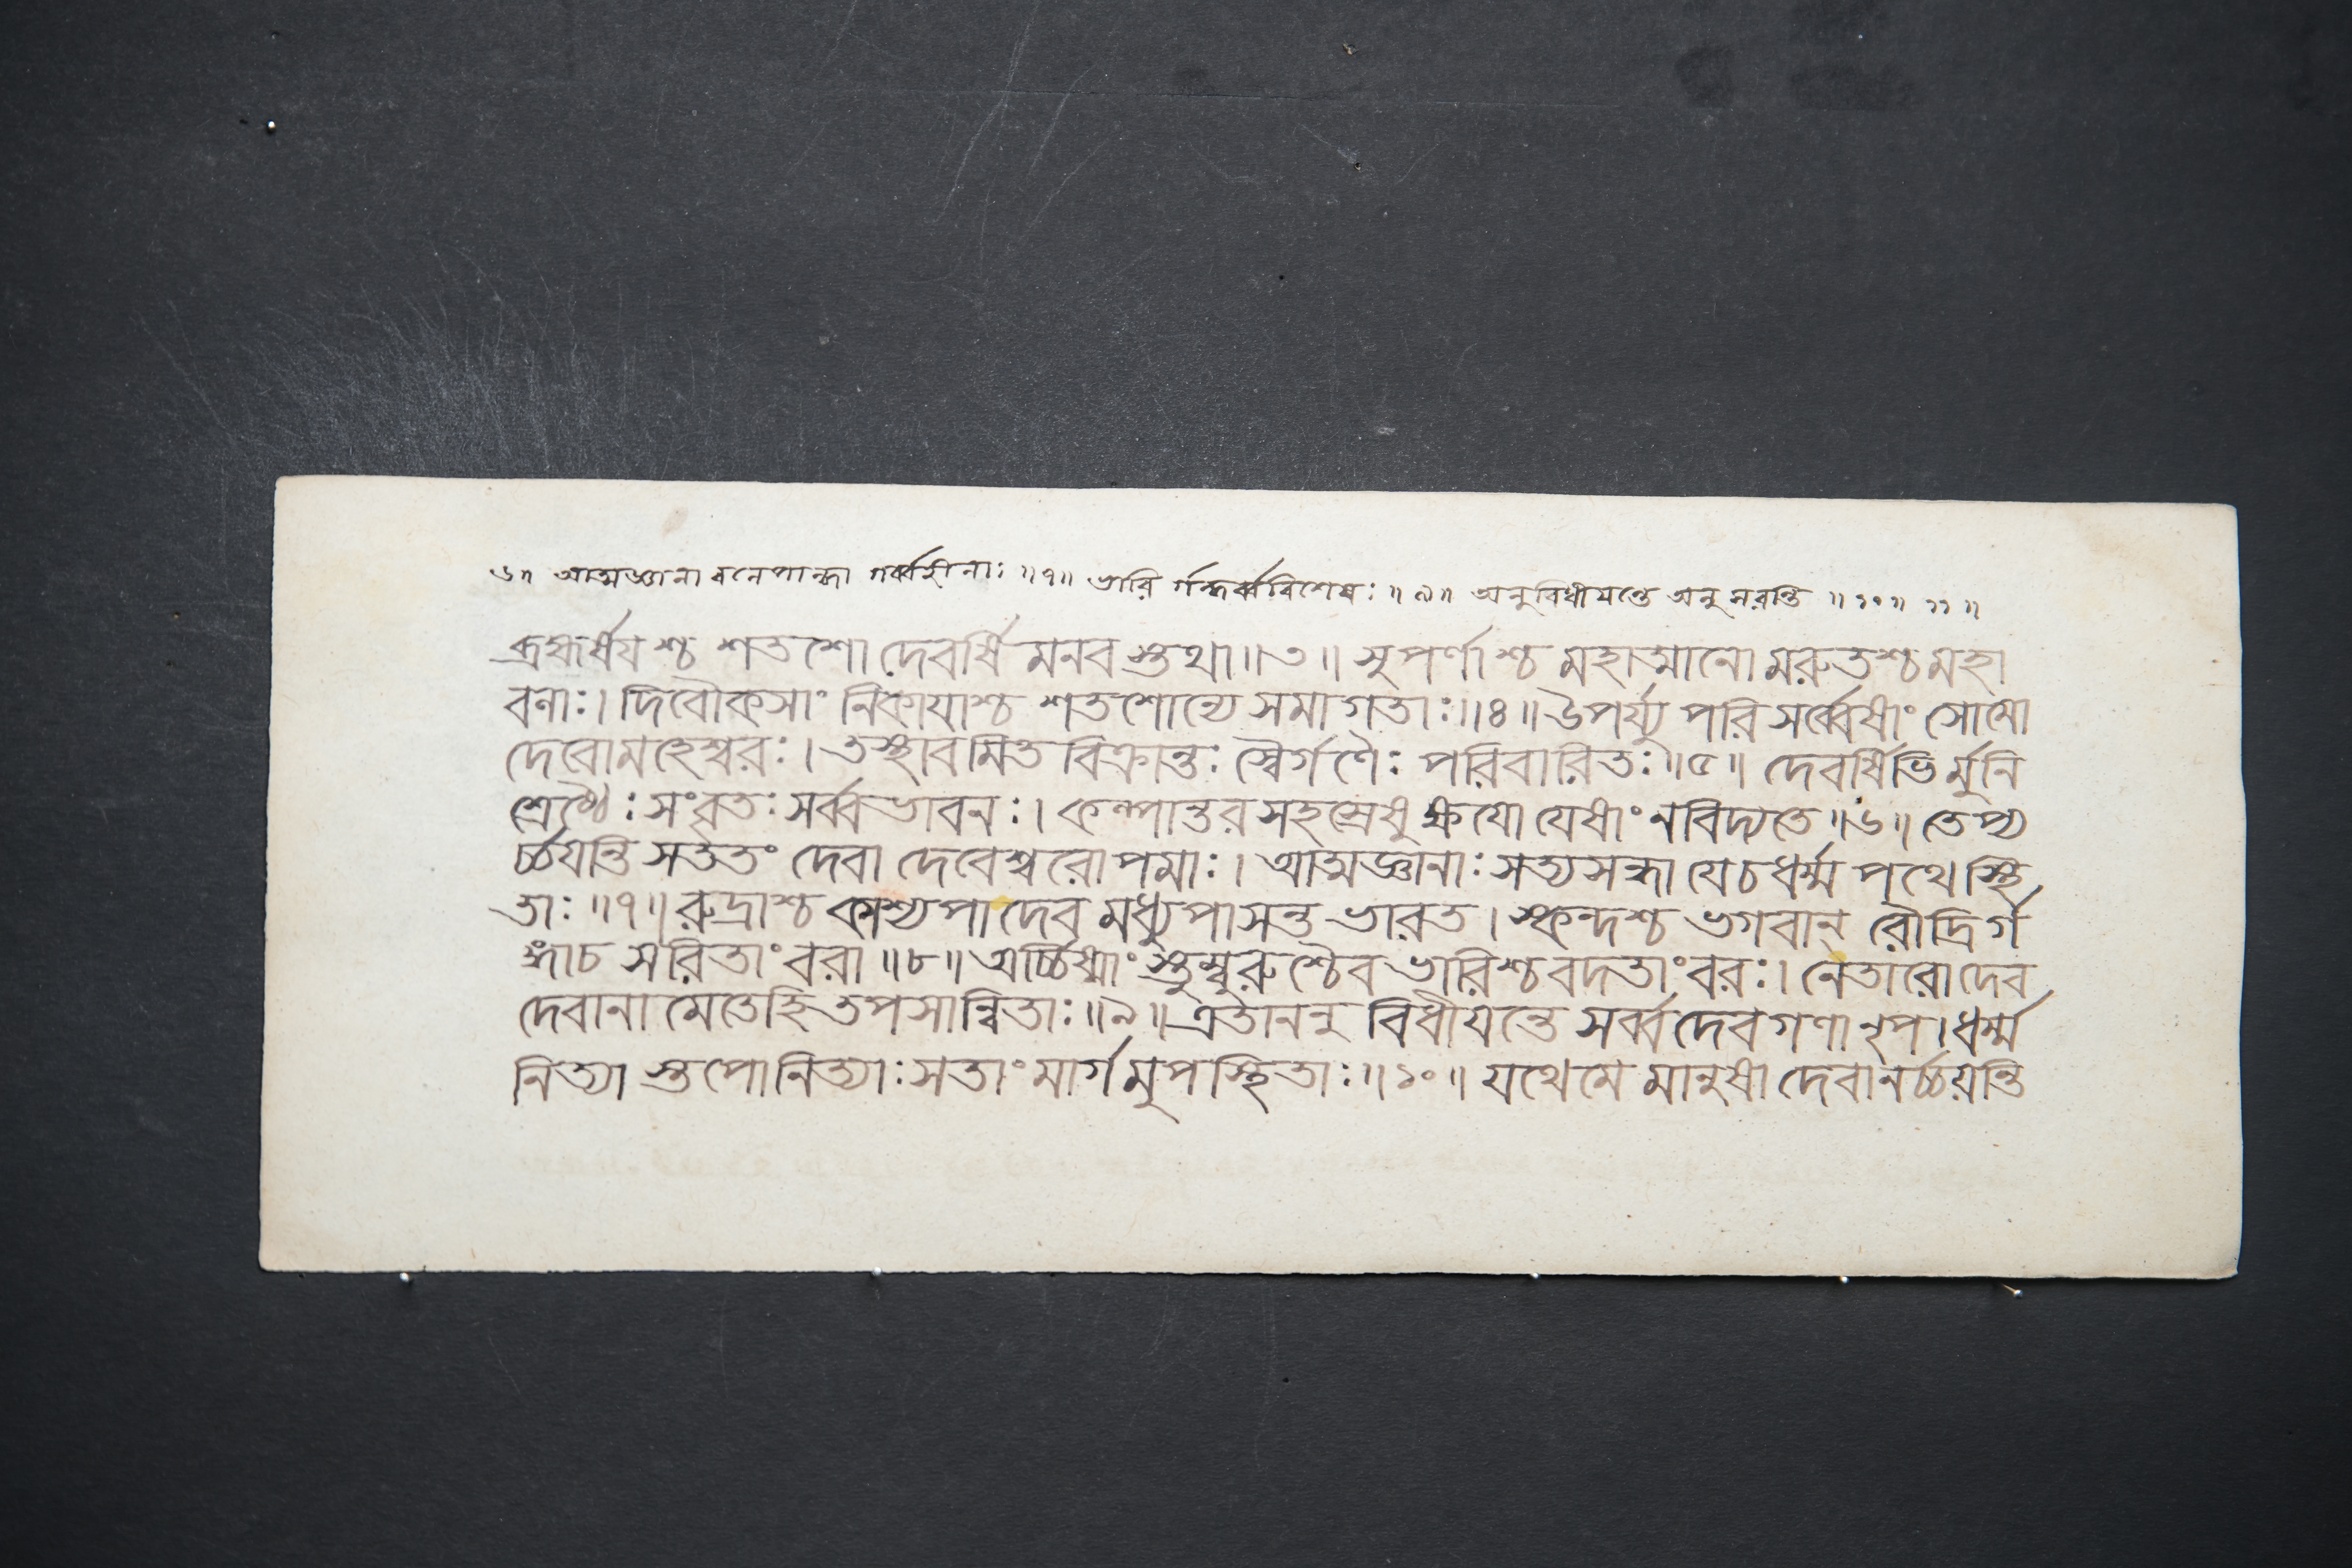 ৬॥ আত্মজ্ঞানা বনেপান্দ্ধা গর্ব্বহীনাঃ ॥৭॥ ভারি র্গন্ধর্ব্ববিশেষঃ ॥৯॥ অনুবিধীয়ন্তে অনুসরন্তি ॥১০॥১১॥
ব্রহ্মর্ষয়শ্চ শতশো দেবর্ষি মনব স্তথা॥৩॥ সুপর্ণাশ্চ মহাত্মানো মরুতশ্চ মহা
বলাঃ। দিবৌকসাং নিকায়াশ্চ শতশোন্যে সমাগতাঃ॥৪॥ উপর্য্যু পরি সর্ব্বেষাং সোমো
দেবোমহেশ্বরঃ। তস্থাবমিত বিক্রান্তঃ স্বৈর্গণৈঃ পরিবারিতঃ॥৫॥ দেবর্ষিভি র্মুনি
শ্রেষ্ঠৈঃ সংবৃতঃ সর্ব্বভাবনঃ। কল্পান্তরসহস্রেষু ক্ষয়ো যেষাং নবিদ্যতে॥৬॥ তেপ্য
র্চ্চয়ন্তি সততং দেবা দেবেশ্বরোপমাঃ। আত্মজ্ঞানাঃ সত্যসন্ধা যেচধর্ম্ম পথে স্থি
তাঃ॥৭॥ রুদ্রাশ্চ কাশ্যপা দেব মধ্যুপাসন্ত ভারত। স্কন্দশ্চ ভগবান্ রৌদ্রি র্গ
ঙ্গাচ সরিতাং বরা॥৮॥ অর্চ্চিষ্মাং স্তুম্বুরুশ্চৈব ভারিশ্চবদতাং বরঃ। নেতারোদেব
দেবানা মেতেহি তপসান্বিতাঃ॥৯॥ এতাননু বিধীয়ন্তে সর্ব্বদেবগণা নৃপ।ধর্ম্ম
নিত্যা স্তপোনিত্যাঃ সতাং মার্গমুপস্থিতাঃ॥১০॥ যথেমে মানুষা দেবানর্চ্চয়ন্তি